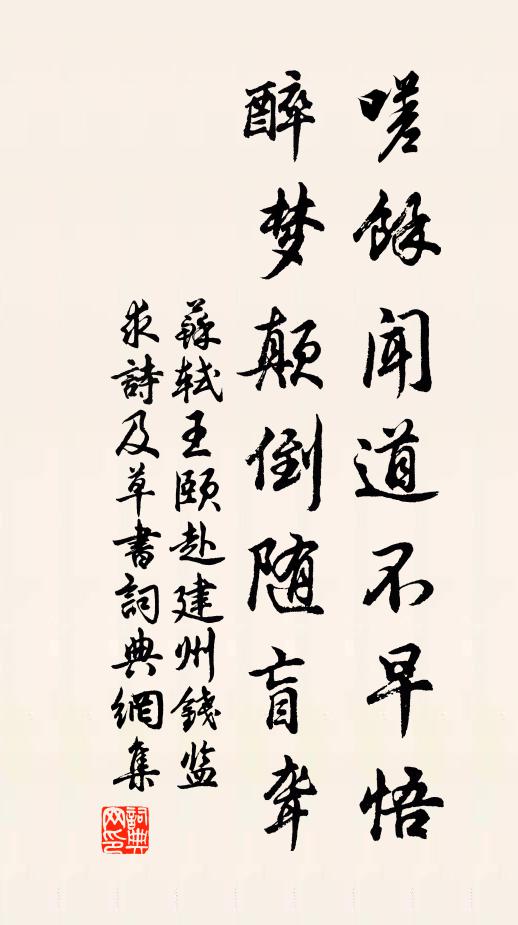 嗟餘闻道不早悟
醉梦颠倒随盲聋
蘇轼王颐赴建州錢监
求詩及草書詞典網集
詞典网印